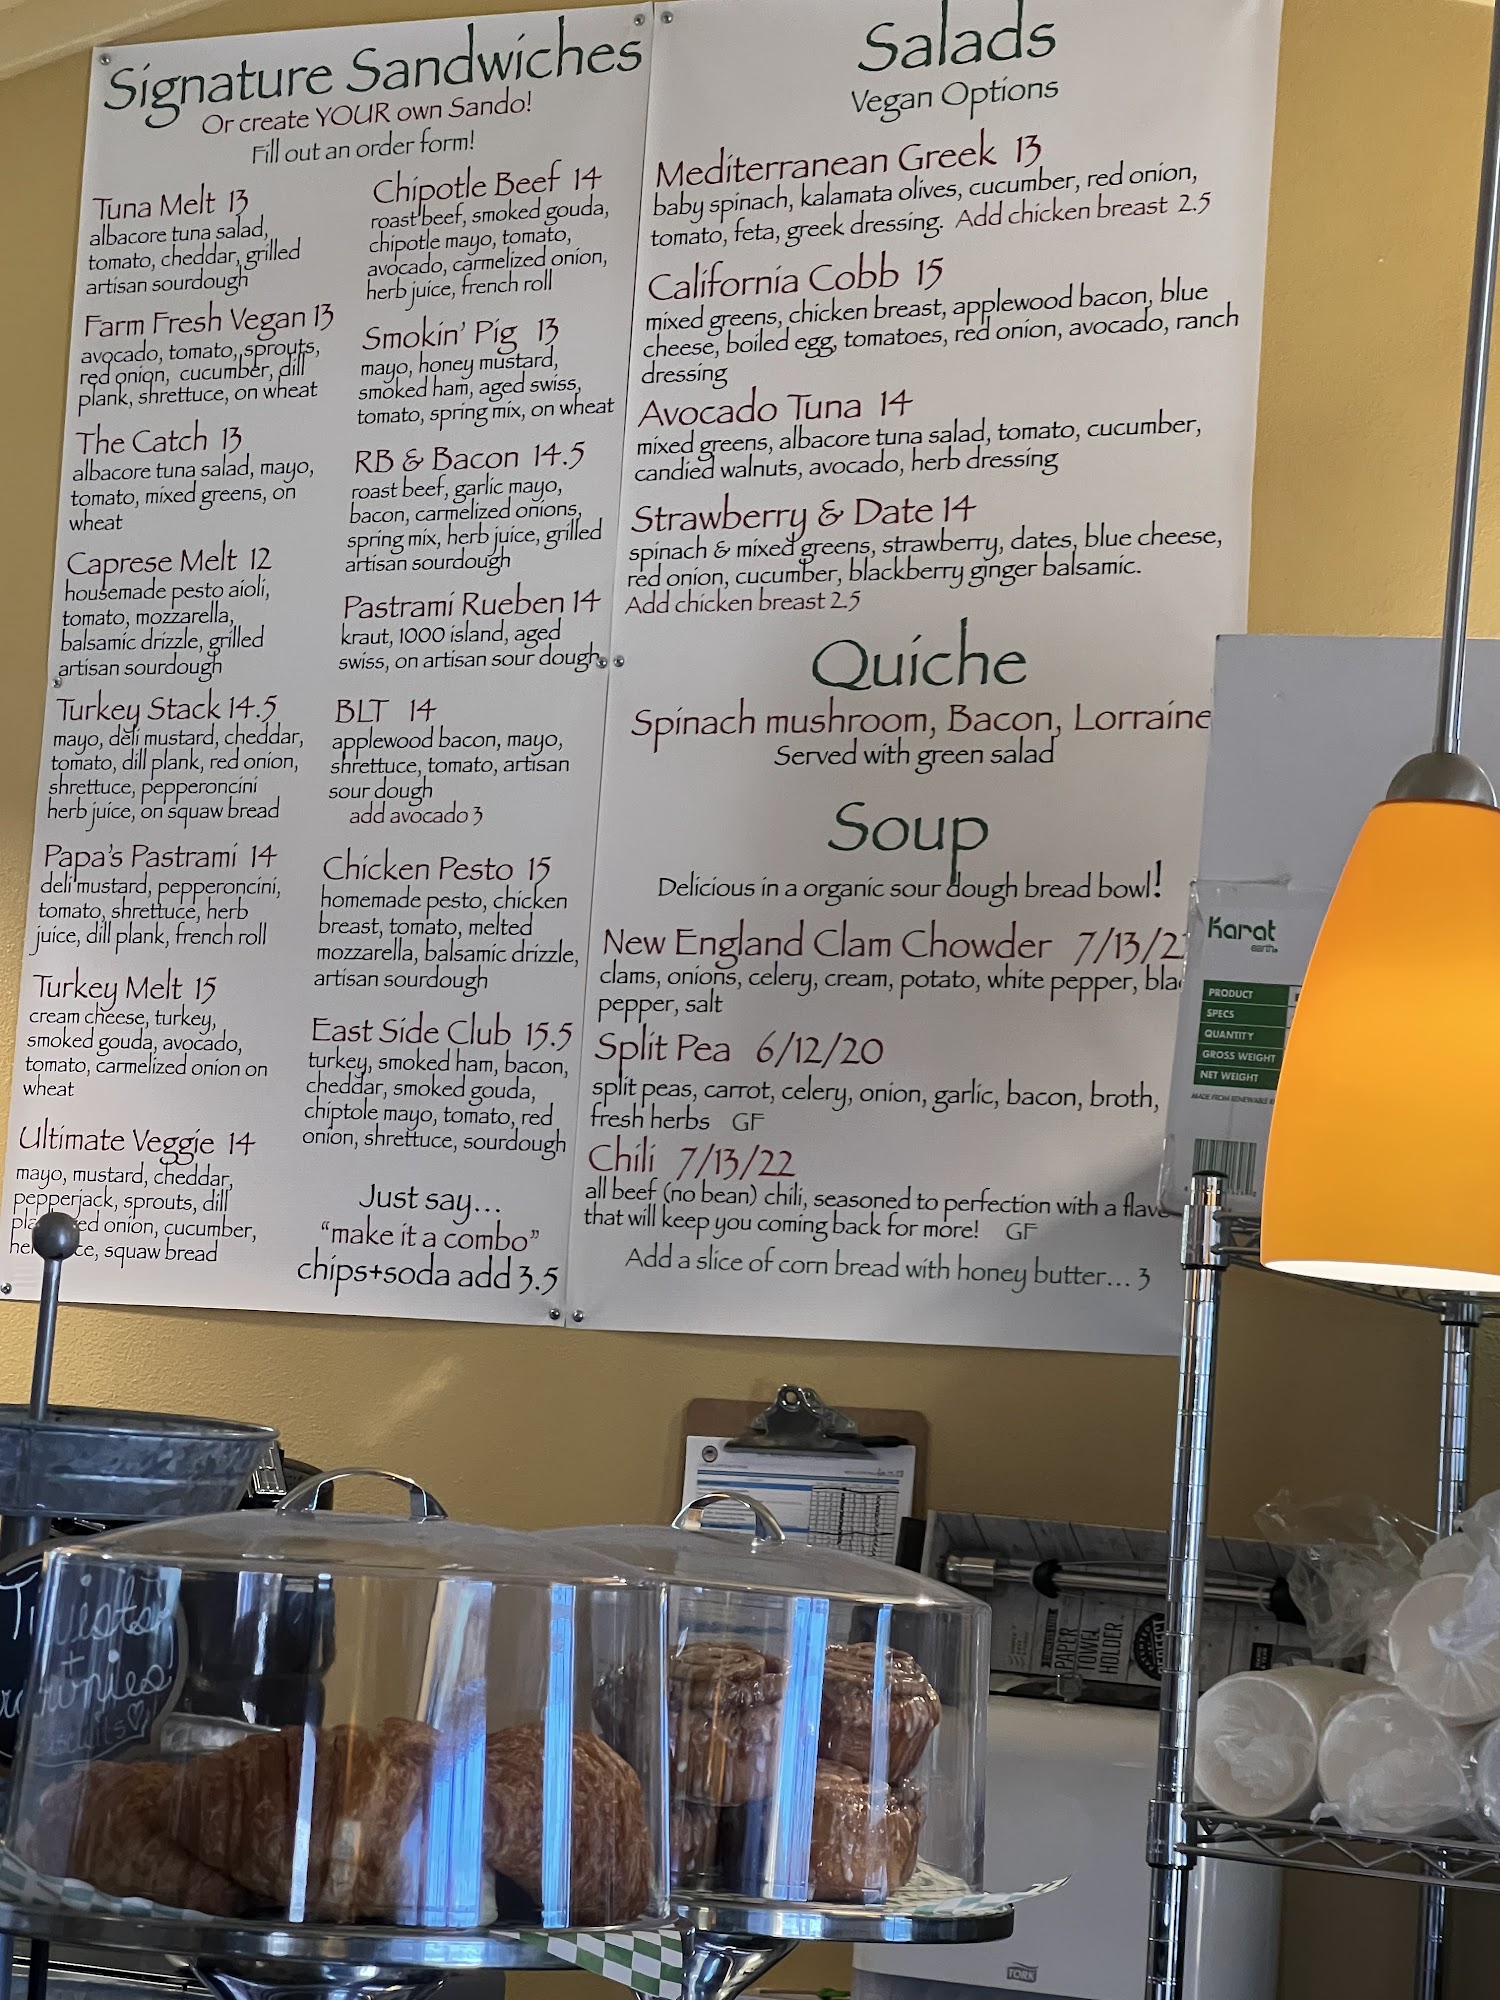 Signature Sandwiches
Or create YOUR own Sando!
Fill out an order form!
Tuna Melt 13
albacore tuna salad,
tomato, cheddar, grilled
artisan sourdough
Farm Fresh Vegan 13
avocado, tomato, sprouts,
red onion, cucumber, dill
plank, shrettuce, on wheat
The Catch 13
albacore tuna salad, mayo,
tomato, mixed greens, on
wheat
Caprese Melt 12
housemade pesto aioli,
tomato, mozzarella,
balsamic drizzle, grilled
artisan sourdough
Turkey Stack 14.5
mayo, deli mustard, cheddar,
tomato, dill plank, red onion,
shrettuce, pepperoncini
herb juice, on squaw bread
Papa's Pastrami 14
deli mustard, pepperoncini,
tomato, shrettuce, herb
juice, dill plank, french roll
Turkey Melt 15
cream cheese, turkey,
smoked gouda, avocado,
tomato, carmelized onion on
wheat
Ultimate Veggie 14
mayo, mustard, cheddar,
pepperjack, sprouts, dill
onion, cucumber,
squaw bread
Chipotle Beef 14
roast beef, smoked gouda,
chipotle mayo, tomato,
avocado, carmelized onion,
herb juice, french roll
Smokin' Pig 13
mayo, honey mustard,
smoked ham, aged swiss,
tomato, spring mix, on wheat
RB & Bacon 14.5
roast beef, garlic mayo,
bacon, carmelized onions,
spring mix, herb juice, grilled
artisan sourdough
Pastrami Rueben 14
kraut, 1000 island, aged
swiss, on artisan sour dough
BLT 14
applewood bacon, mayo,
shrettuce, tomato, artisan
sour dough
add avocado 3
Chicken Pesto 15
homemade pesto, chicken
breast, tomato, melted
mozzarella, balsamic drizzle,
artisan sourdough
East Side Club 15.5
turkey, smoked ham, bacon,
cheddar, smoked gouda,
chiptole mayo, tomato, red
onion, shrettuce, sourdough
Just say...
"make it a combo"
chips+soda add 3.5
Salads
Vegan Options
Mediterranean Greek 13
baby spinach, kalamata olives, cucumber, red onion,
tomato, feta, greek dressing. Add chicken breast 2.5
California Cobb 15
mixed greens, chicken breast, applewood bacon, blue
cheese, boiled egg, tomatoes, red onion, avocado, ranch
dressing
Avocado Tuna 14
mixed greens, albacore tuna salad, tomato, cucumber,
candied walnuts, avocado, herb dressing
Strawberry & Date 14
spinach & mixed greens, strawberry, dates, blue cheese,
red onion, cucumber, blackberry ginger balsamic.
Add chicken breast 2.5
Quiche
Spinach mushroom, Bacon, Lorraine
Served with green salad
Soup
Delicious in a organic sour dough bread bowl!
New England Clam Chowder 7/13/2
clams, onions, celery, cream, potato, white pepper, bla
pepper, salt
Split Pea 6/12/20
split peas, carrot, celery, onion, garlic, bacon, broth,
fresh herbs GF
Chili 7/13/22
all beef (no bean) chili, seasoned to perfection with a flav
that will keep you coming back for more! GF
Add a slice of corn bread with honey butter... 3
Karat
earth
PRODUCT
SPECS
QUANTITY
GROSS WEIGHT
NET WEIGHT
Twists
+
PAPER
TOWEL
HOLDER
TORK